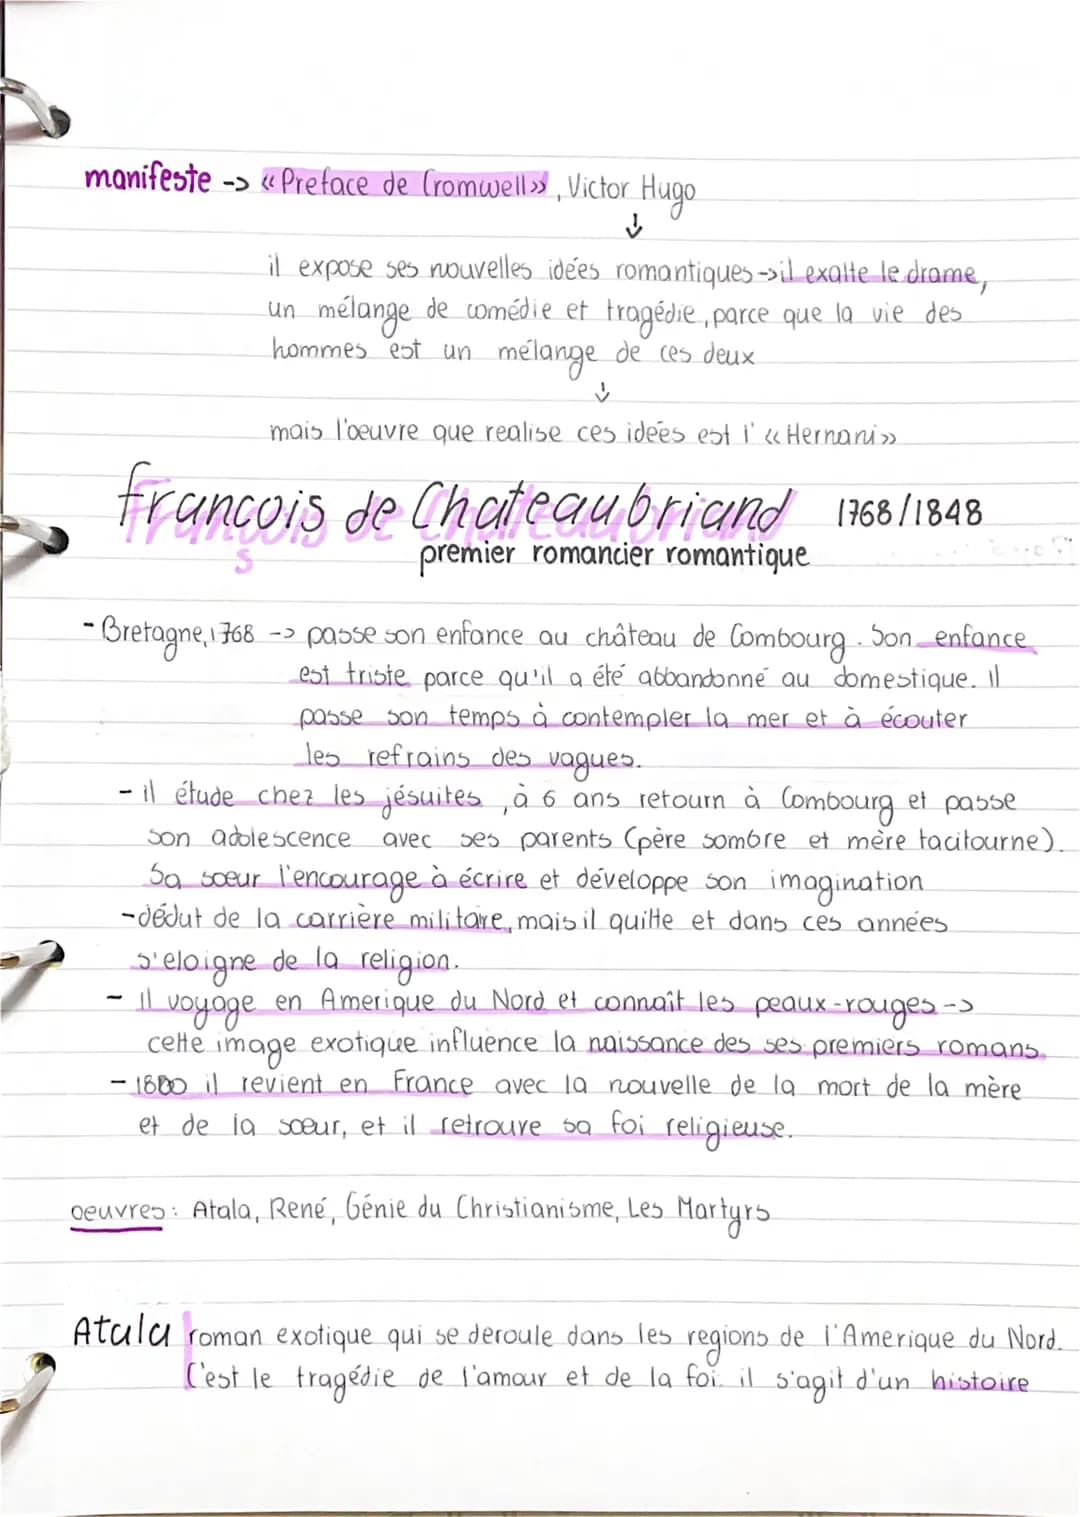 manifeste -> «Preface de Cromwell», Victor Hugo
↓
il expose ses nouvelles idées romantiques->il exalte le drame,
un mélange de comédie et tragédie, parce que la vie des
hommes est un mélange de ces deux
↓
mais l'oeuvre que realise ces idées est l' «Hernani»
François de Chateaubriand 1768/1848
premier romancier romantique
- Bretagne, 1768 -> passe son enfance au château de Combourg. Son enfance
est triste parce qu'il a été abbandonné au domestique. Il
passe son temps à contempler la mer et à écouter
les refrains des vagues.
- il étude chez les jésuites, à 6 ans retourn à Combourg et passe
son adolescence avec ses parents (père sombre et mère tacitourne).
Sa soeur l'encourage à écrire et développe son imagination
-dédut de la carrière militare, mais il quitte et dans ces années
s'eloigne de la religion.
- Il voyage en Amerique du Nord et connaît les peaux-rouges->
cette image exotique influence la naissance des ses premiers romans.
- 1800 il revient en France avec la nouvelle de la mort de la mère
et de la soeur, et il retrouve sa foi religieuse.
oeuvres: Atala, René, Génie du Christianisme, Les Martyrs
Atala roman exotique qui se deroule dans les regions de l'Amerique du Nord.
C'est le tragédie de l'amour et de la foi. il s'agit d'un histoire